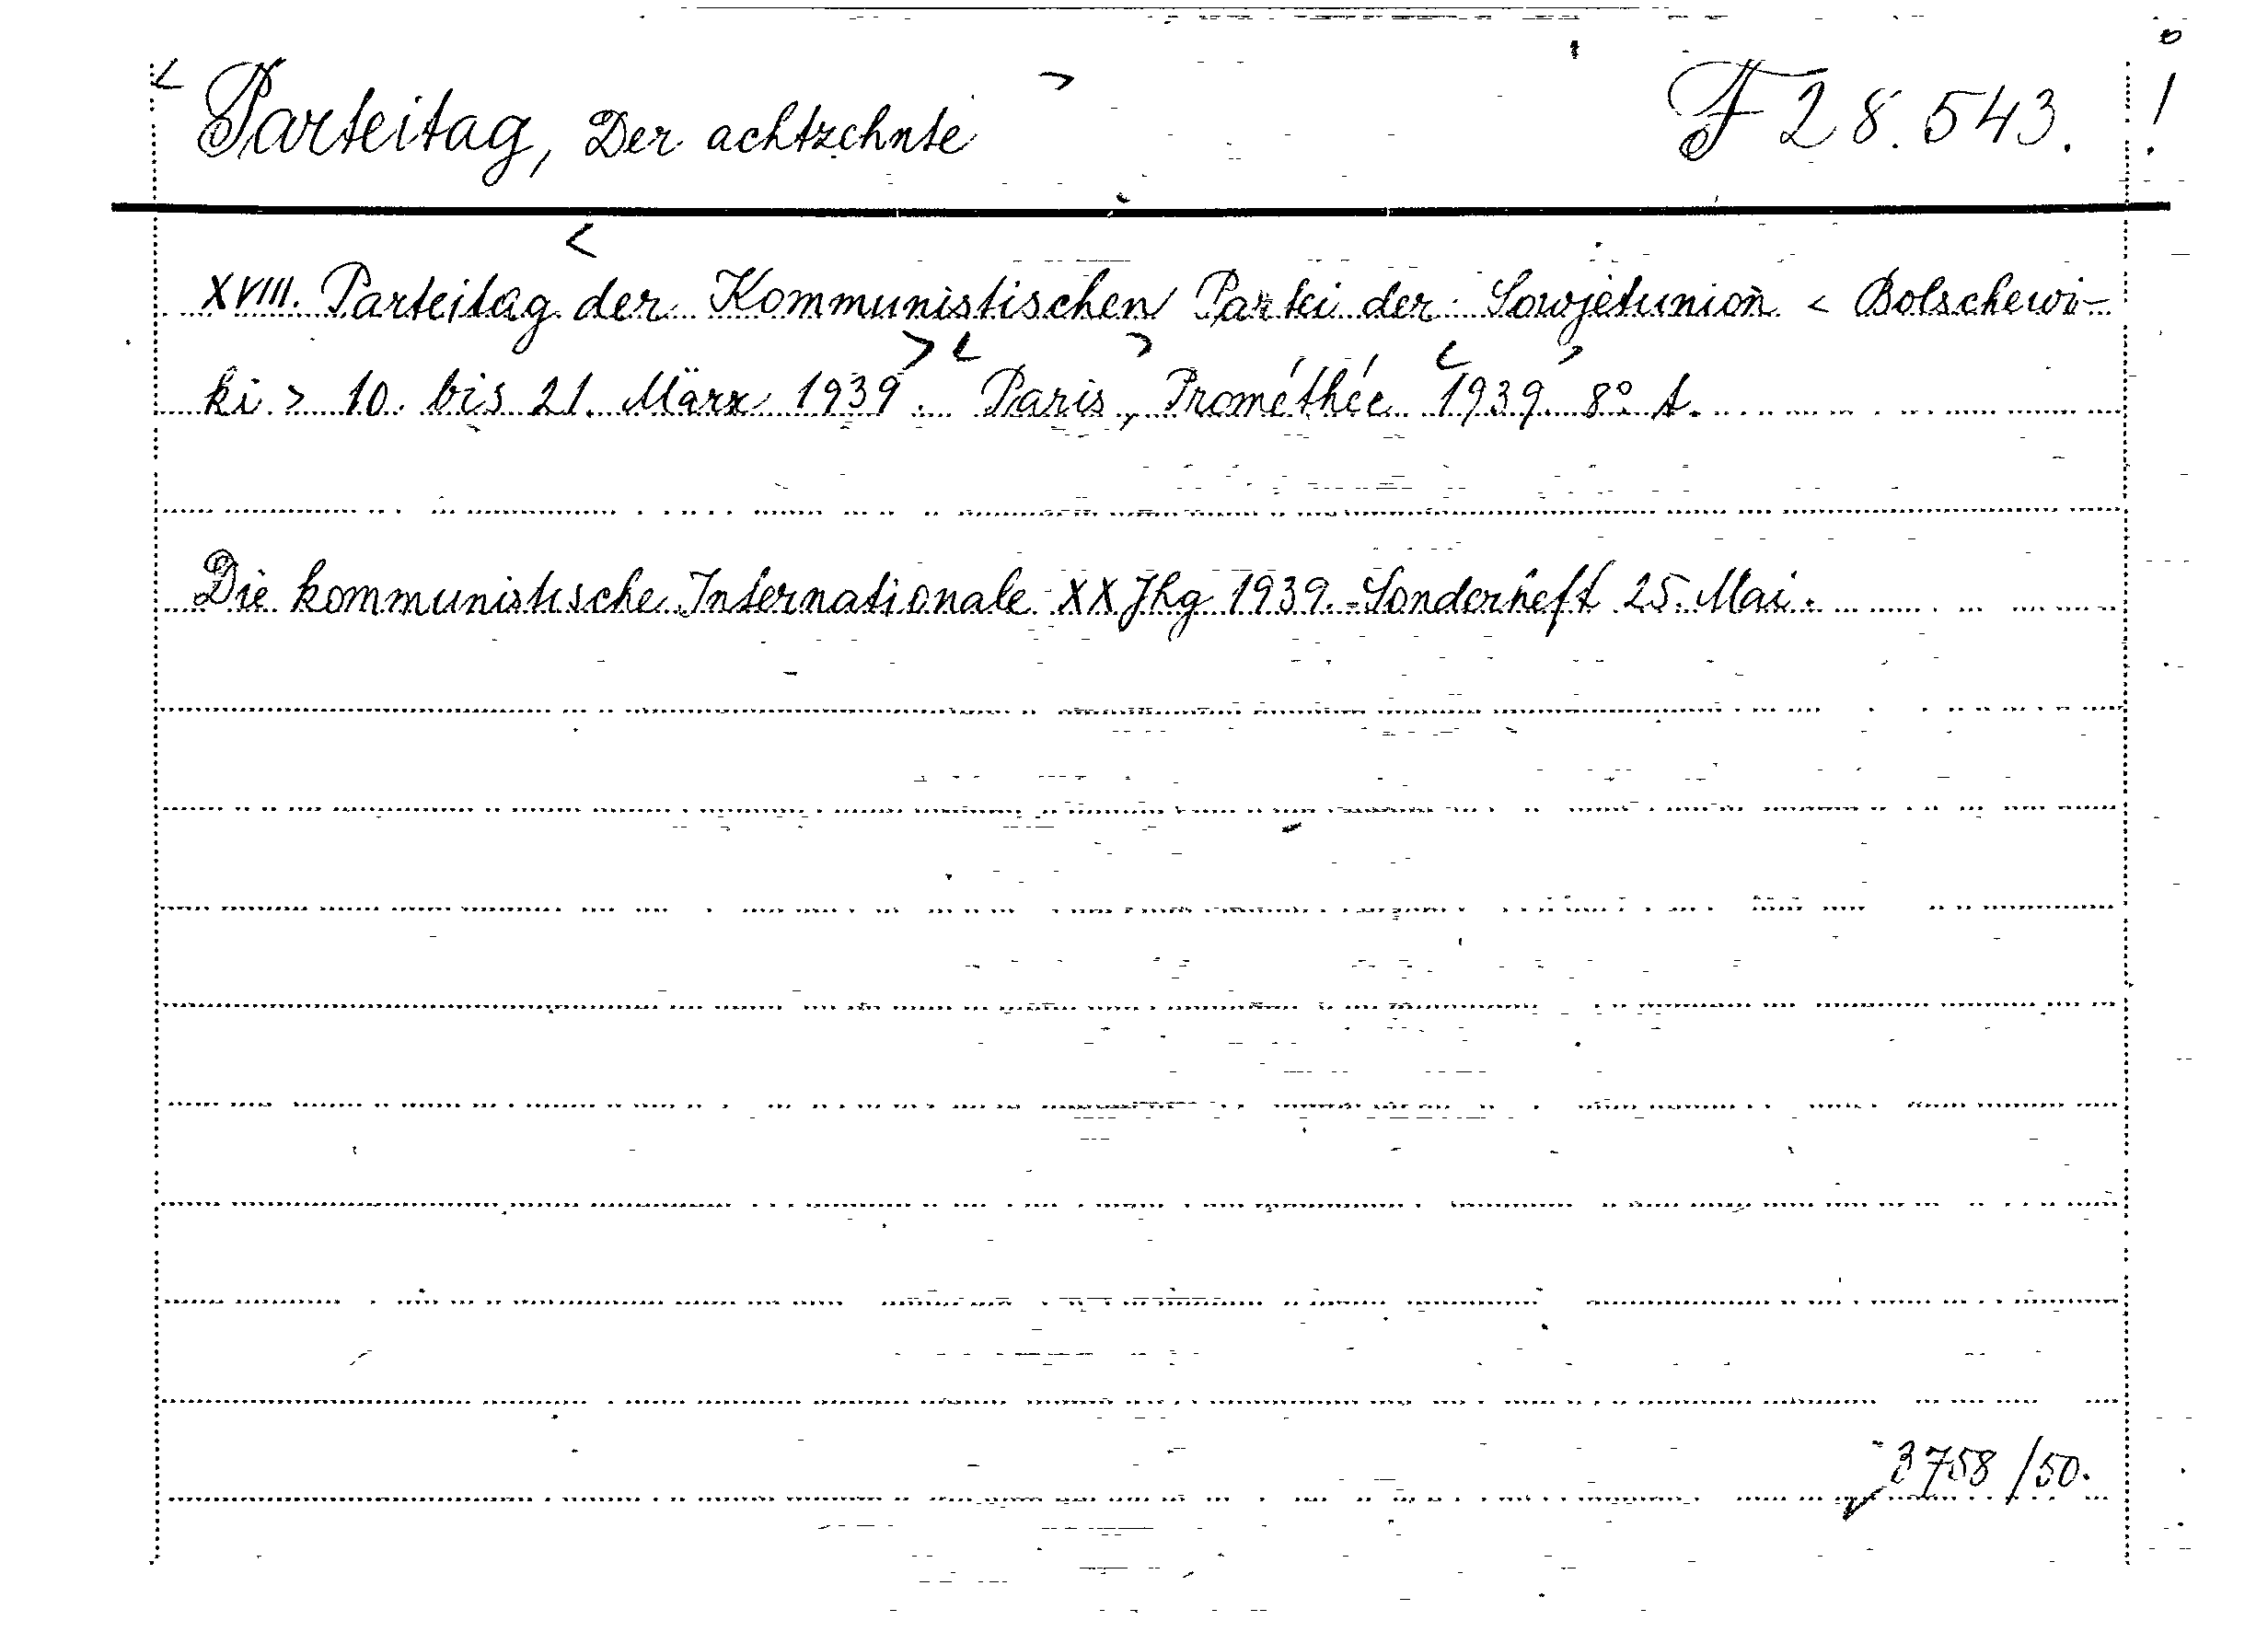 < Parteitag, Der achtzehnte > F 28.543. !
XVIII. Parteitag < der Kommunistischen Partei der Sowjetunion < Bolschewi-
ki > 10. bis 21. März 1939 > . < Paris > , Prométhée < 1939 > 8° A.
Die kommunistische Internationale XX Jhg 1939. Sonderheft 25. Mai.
3758/50.